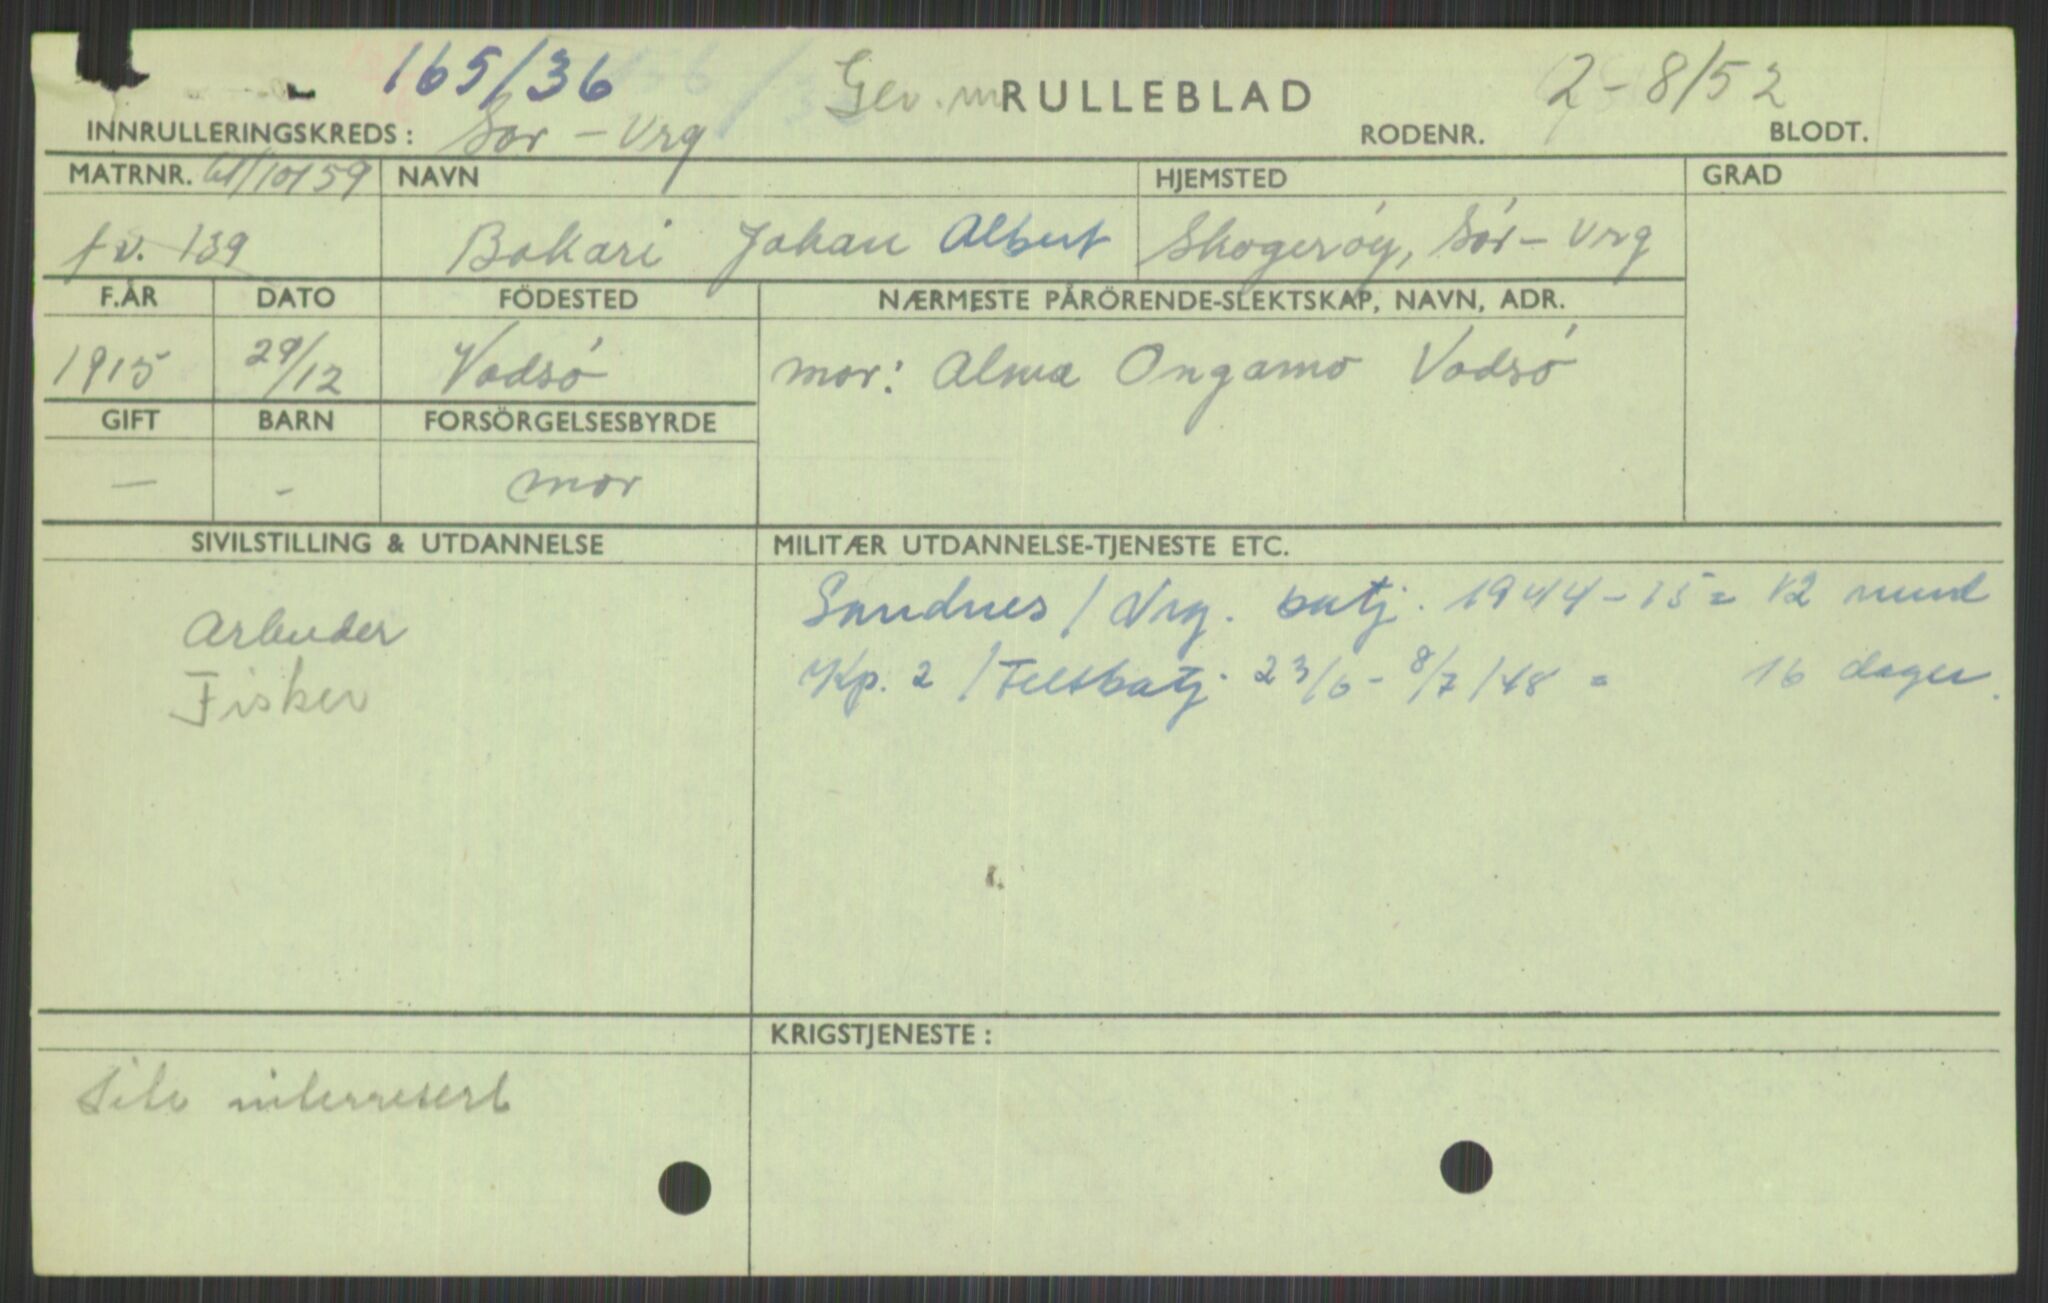 165/36 Gev. m RULLEBLAD 2-8/52
INNRULLERINGSKREDS: Sør-Vrg RODENR. BLODT.
MATRNR. 61/10159 NAVN HJEMSTED GRAD
f v. 139 Bakari Johan Albert Skogerøy, Sør-Vrg
F.ÅR DATO FÖDESTED NÆRMESTE PÅRÖRENDE-SLEKTSKAP, NAVN, ADR.
1915 29/12 Vadsö mor: Alma Ongamo Vadsö
GIFT BARN FORSÖRGELSESBYRDE
— - mor
SIVILSTILLING & UTDANNELSE MILITÆR UTDANNELSE-TJENESTE ETC.
Arbeider
Fisker
Sandnes / Vrg. batj. 1944-45= 12 mnd
Kp. 2 / Feltbatj. 23/6-8/7/48 = 16 dager.
KRIGSTJENESTE:
Lite interresert